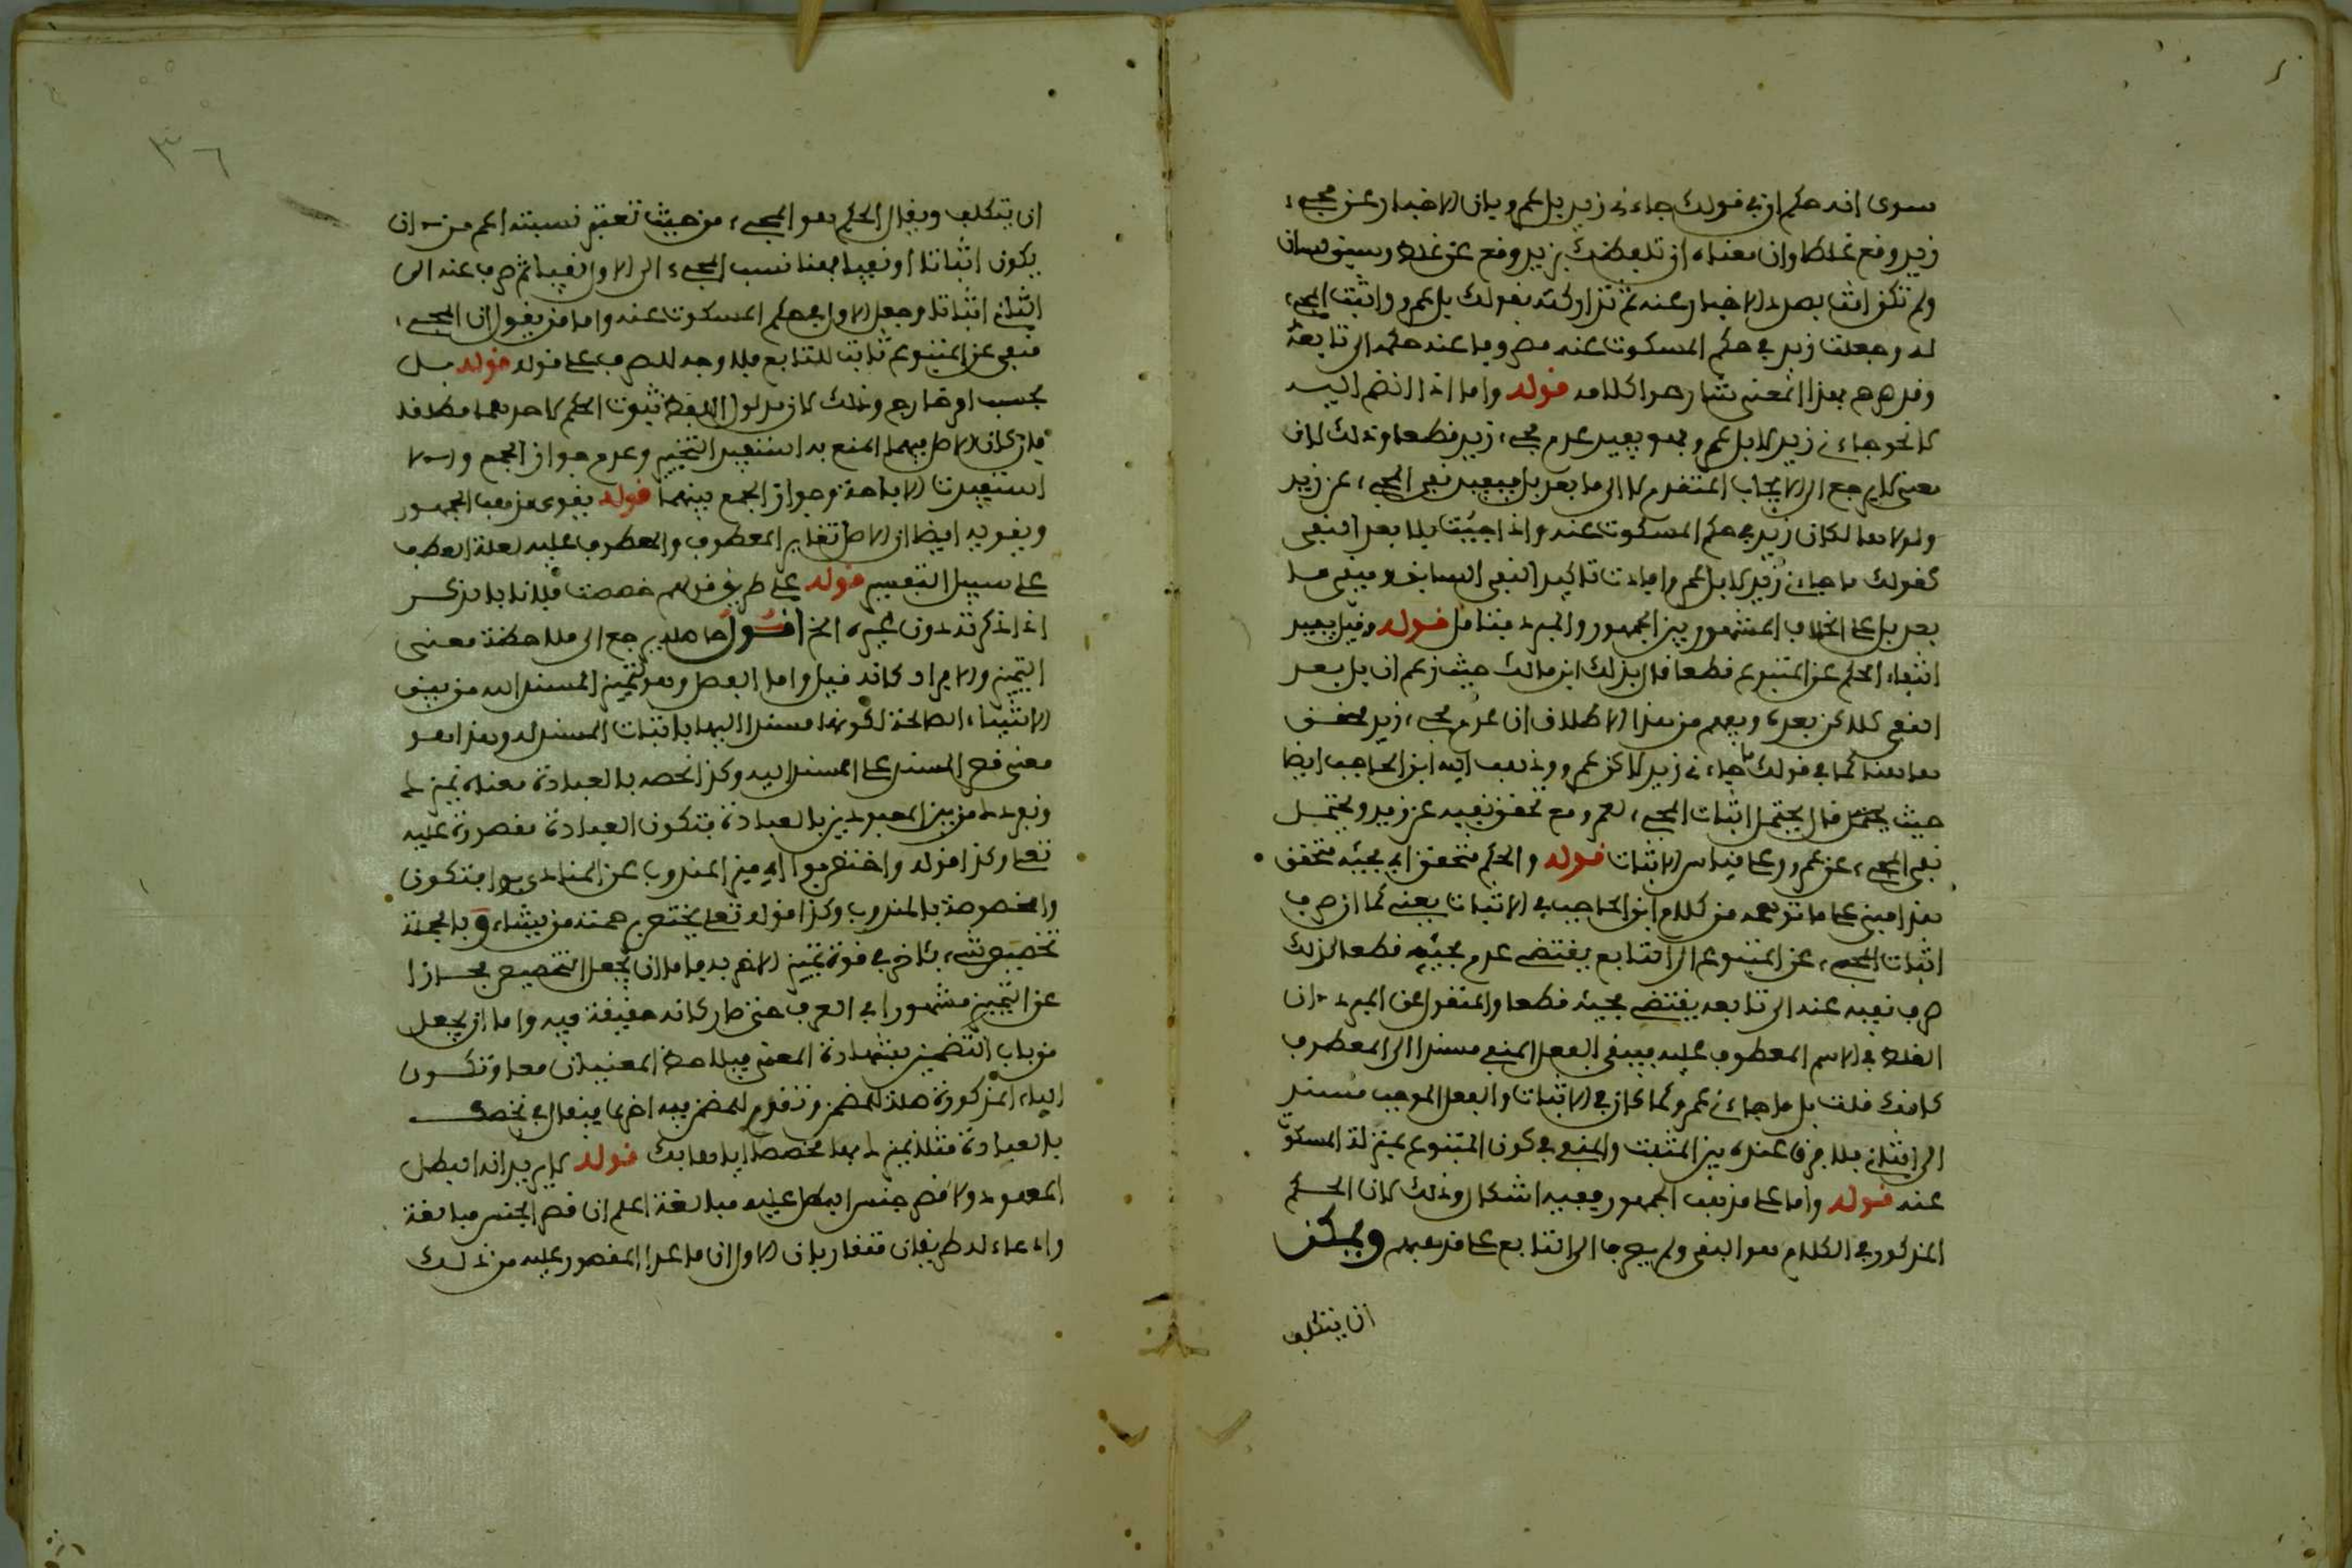 سوى انه حكم ان في قولك جاءني زيد بل عمرو بان الاخبار عن مجيء
زيد وقع غلطا وان معناه ان تلفظك بزيد وقع عن غلط وسبق لسان
ولم تكن انت بصدد الاخبار عنه ثم تداركته بقولك بل عمرو واثبت المجيء
له وجعلت زيد في حكم المسكوت عنه مصروفا عنه حكمه الى تابعه
وقد صرح بهذا المعنى شارحوا كلامه قوله واما اذا انضم اليه
لا نحو جاءني زيد لا بل عمرو فهو يفيد عدم مجيء زيد قطعا وذلك لان
معنى لا يرجع الى الايجاب المتقدم لا الى ما بعد بل فيفيد نفي المجيء عن زيد
ولولا هذا لكان زيد في حكم المسكوت عنه واذا جيئت بلا بعد النفي
كقولك ما جاءني زيد لا بل عمرو افادت تاكيد النفي السابق ويبقى ما
بعد بل على الخلاف المشهور بين الجمهور والمبرد فتامل قوله وقيل يفيد
انتفاء الحكم عن المتبوع قطعا قال بذلك ابن مالك حيث زعم ان بل بعد
النفي كلاكن بعده ويفهم من هذا الاطلاق ان عدم مجيء زيد محقق
هاهنا كما في قولك ما جاءني زيد لاكن عمرو وذهب اليه ابن الحاجب ايضا
حيث قال يحتمل اثبات المجيء لعمرو مع تحقق نفيه عن زيد ويحتمل
نفي المجيء عن عمرو وعلى قياس الاثبات قوله والحكم متحقق اي مجيئه متحقق
هذا مبني على ما توهمه من كلام ابن الحاجب في الاثبات يعني كما ان صرف
اثبات المجيء عن المتبوع الى التابع يقتضي عدم مجيئه قطعا كذلك
صرف نفيه عنه الى تابعه يقتضي مجيئه قطعا والمنقول عن المبرد ان
الغلط في الاسم المعطوف عليه فيبقى الفعل المنفي مسندا الى المعطوف
كانك قلت بل ما جاءني عمرو كما كان في الاثبات والفعل الموجب مسند
الى الثاني فلا فرق عنده بين المثبت والمنفي في كون المتبوع بمنزلة المسكوت
عنه قوله واما على مذهب الجمهور ففيه اشكال وذلك لان الحكم
المذكور في الكلام هو النفي ولم يصرف الى التابع على مذهبهم ويمكن
ان يتكلف
٣٦
ان يتكلف ويقال الحكم هو المجيء من حيث تعتبر نسبته اعم من ان
يكون اثباتا او نفيا فهنا نسب المجيء الى الاول نفيا ثم صرف عنه الى
الثاني اثباتا وجعل الاول في حكم المسكوت عنه واما من يقول ان المجيء
منفي عن المتبوع ثابت للتابع فلا وجه للصرف على قوله قوله بل
بحسب امر خارج وذلك لان مدلول اللفظ ثبوت الحكم لاحدهما مطلقا
فان كان الاصل فيهما المنع به استفيد التخيير وعدم جواز الجمع والا
استفيدت الاباحة وجواز الجمع بينهما قوله يقوي مذهب الجمهور
ويقويه ايضا ان الاصل تغاير المعطوف والمعطوف عليه لعلة العطف
على سبيل التفسير قوله على طريق قولهم خصصت فلانا بالذكر
اذا ذكرته دون غيره الخ اقول حاصله يرجع الى ملاحظة معنى
التمييز والافراد كانه قيل واما الفصل فهو لتمييز المسند اليه من بين
الاشياء الصالحة لكونها مسندا اليها باثبات المسند له وهذا هو
معنى قصر المسند على المسند اليه وكذا نخصه بالعبادة معناه نميزك
ونفردك من بين المعبودين بالعبادة فتكون العبادة مقصورة عليه
تعالى وكذا قوله واختص بوا اي ميز المندوب عن المنادى بوا فتكون
وا مخصوصة بالمندوب وكذا قوله تعالى يختص برحمته من يشاء وبالجملة
تخصيص شيء باخر في قوة تمييز الاخر به فاما ان يجعل التخصيص مجازا
عن التمييز مشهورا في العرف حتى صار كانه حقيقة فيه واما ان يجعل
من باب التضمين بشهادة المعنى فيلاحظ المعنيان معا وتكون
الباء المذكورة صلة للمضمن وتقدم للمضمن فيه اخرى فيقال في نخصك
بالعبادة مثلا نميزك بها مخصصا اياها بك قوله لا يريد انه البطل
المعهود ولا قصر جنس البطل عليه مبالغة اعلم ان قصر الجنس مبالغة
وادعاء له طريقان متقاربان الاول ان ما عدا المقصور عليه من ذلك